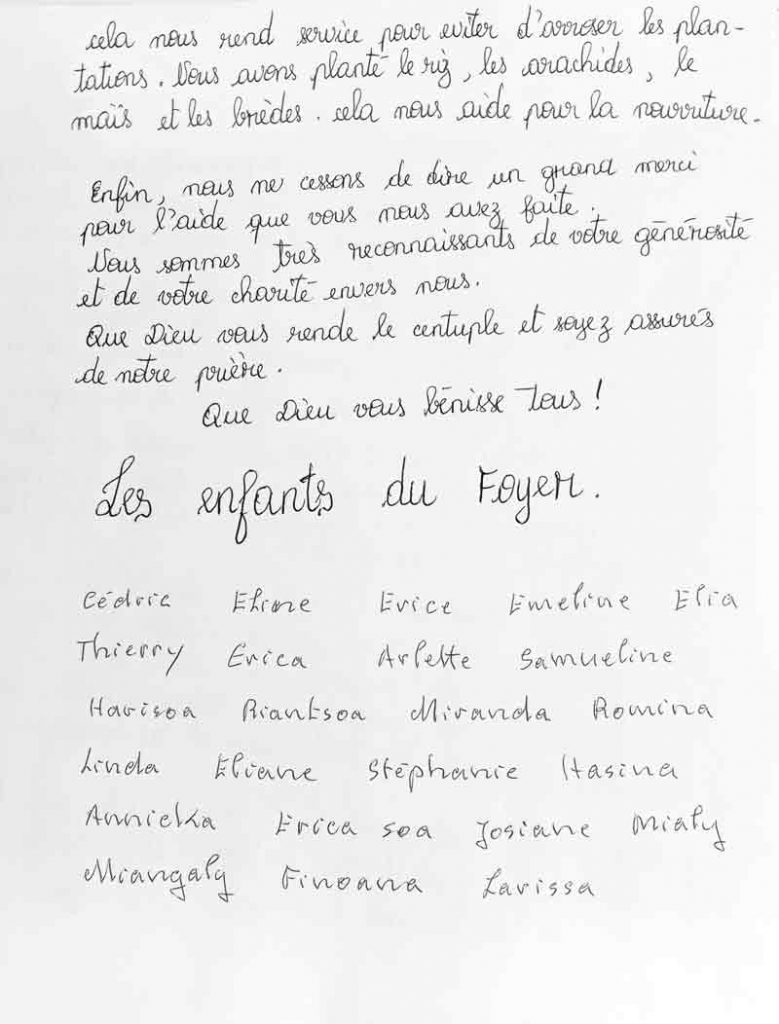 cela nous rend service pour eviter d'arroser les plan-
tations. Nous avons planté le riz, les arachides, le
maïs et les brèdes. cela nous aide pour la nourriture.
Enfin, nous ne cessons de dire un grand merci
pour l'aide que vous nous avez faite.
Nous sommes très reconnaissants de votre générosité
et de votre charité envers nous.
Que Dieu vous rende le centuple et soyez assurés
de notre prière.
Que Dieu vous bénisse Tous !
Les enfants du Foyer.
Cédric Eline Erice Emeline Elia
Thierry Erica Arlette Samueline
Harisoa Riantsoa Miranda Romina
Linda Eliane Stéphanie Hasina
Annielka Erica soa Josiane Mialy
Miangaly Finoana Larissa